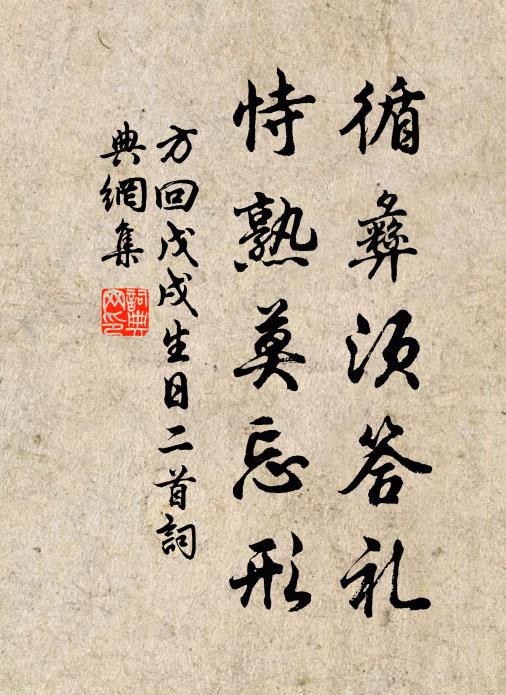 循彝须答礼
恃熟莫忘形
方回戊戌生日二首詞
典網集
詞典网印